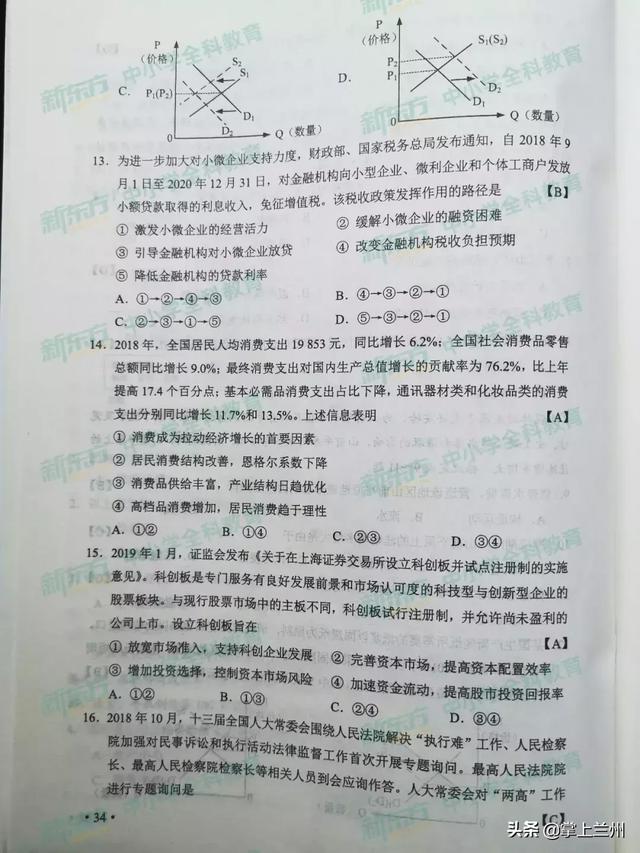 P
(价格)
S₂
S₁
C.
P₁(P₂)
D₁
D₂
0
Q（数量）
P
(价格)
S₁(S₂)
P₂
P₁
D.
D₁
D₂
0
Q（数量）
13. 为进一步加大对小微企业支持力度，财政部、国家税务总局发布通知，自 2018 年 9
月 1 日至 2020 年 12 月 31 日，对金融机构向小型企业、微利企业和个体工商户发放
小额贷款取得的利息收入，免征增值税。该税收政策发挥作用的路径是 【B】
① 激发小微企业的经营活力 ② 缓解小微企业的融资困难
③ 引导金融机构对小微企业放贷 ④ 改变金融机构税收负担预期
⑤ 降低金融机构的贷款利率
A. ①→②→④→③ B. ④→③→②→①
C. ②→③→①→⑤ D. ⑤→③→②→①
14. 2018 年，全国居民人均消费支出 19 853 元，同比增长 6.2%；全国社会消费品零售
总额同比增长 9.0%；最终消费支出对国内生产总值增长的贡献率为 76.2%，比上年
提高 17.4 个百分点；基本必需品消费支出占比下降，通讯器材类和化妆品类的消费
支出分别同比增长 11.7%和 13.5%。上述信息表明 【A】
① 消费成为拉动经济增长的首要因素
② 居民消费结构改善，恩格尔系数下降
③ 消费品供给丰富，产业结构日趋优化
④ 高档品消费增加，居民消费趋于理性
A. ①② B. ①④ C. ②③ D. ③④
15. 2019 年 1 月，证监会发布《关于在上海证券交易所设立科创板并试点注册制的实施
意见》。科创板是专门服务有良好发展前景和市场认可度的科技型与创新型企业的
股票板块。与现行股票市场中的主板不同，科创板试行注册制，并允许尚未盈利的
公司上市。设立科创板旨在 【A】
① 放宽市场准入，支持科创企业发展 ② 完善资本市场，提高资本配置效率
③ 增加投资选择，控制资本市场风险 ④ 加速资金流动，提高股市投资回报率
A. ①② B. ①③ C. ②④ D. ③④
16. 2018 年 10 月，十三届全国人大常委会围绕人民法院解决“执行难”工作、人民检察
院加强对民事诉讼和执行活动法律监督工作首次开展专题询问。最高人民法院院
长、最高人民检察院检察长等相关人员到会应询作答。人大常委会对“两高”工作
进行专题询问是 【C】
· 34 ·
头条 @掌上兰州
新东方 中小学全科教育